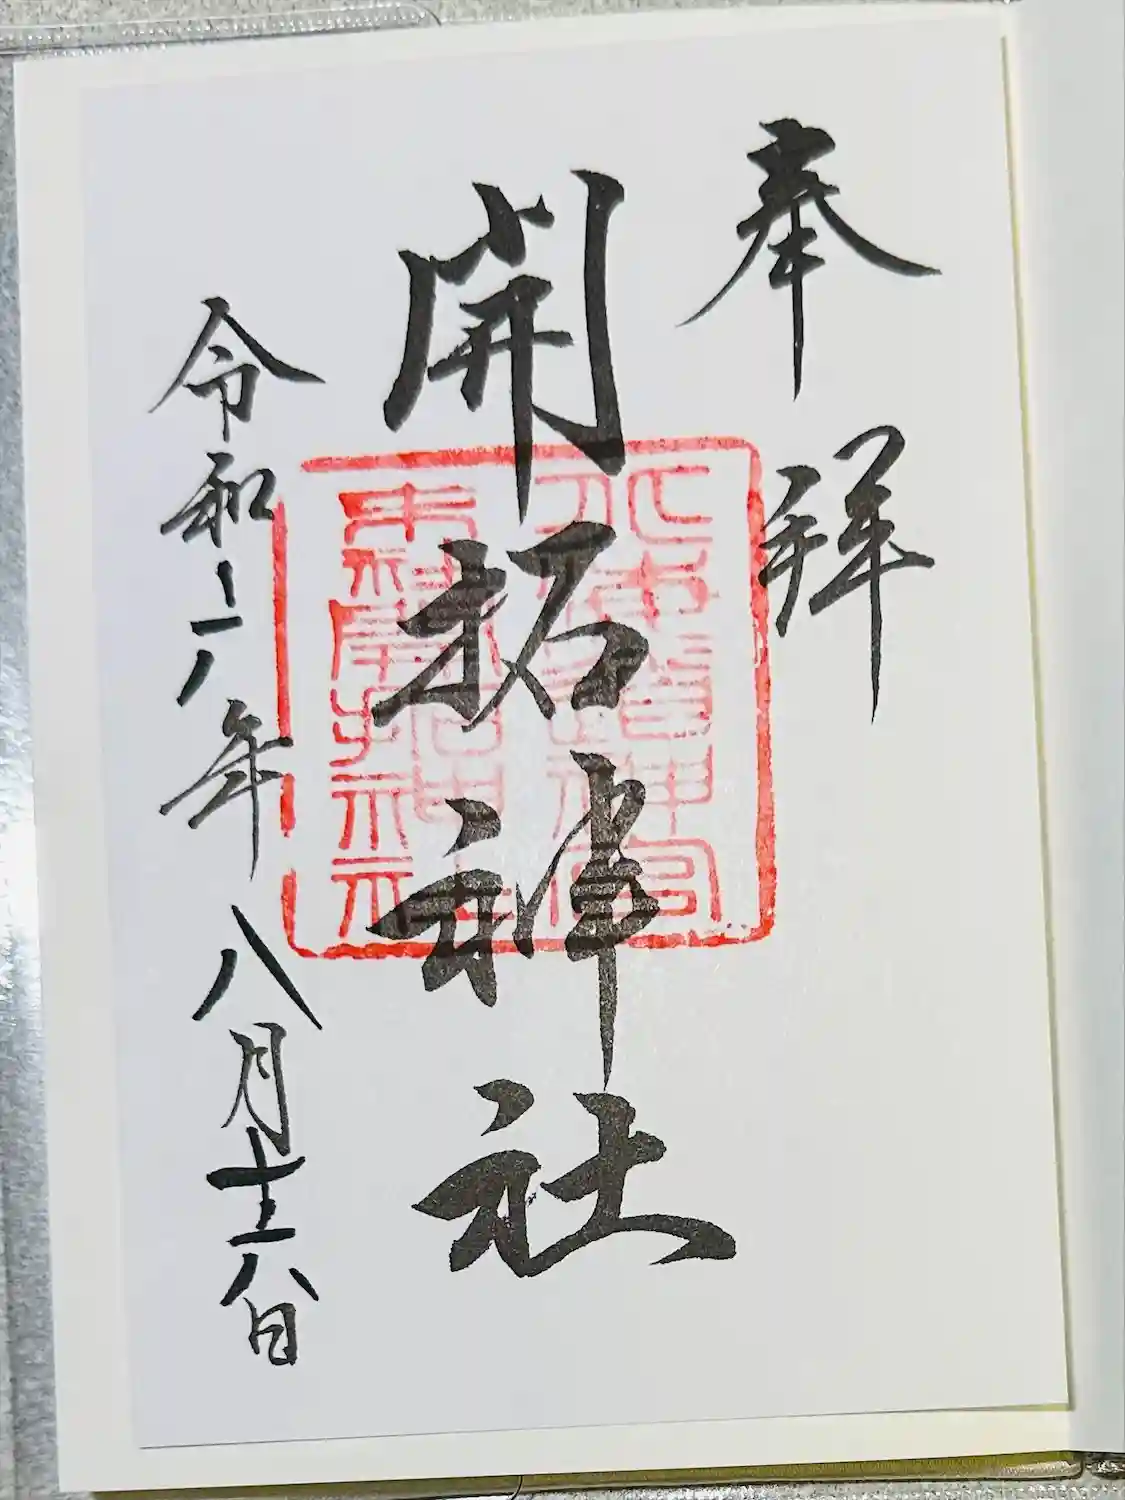 奉拜
開拓神社
令和六年八月十六日
北海道神宮
末社開拓神社